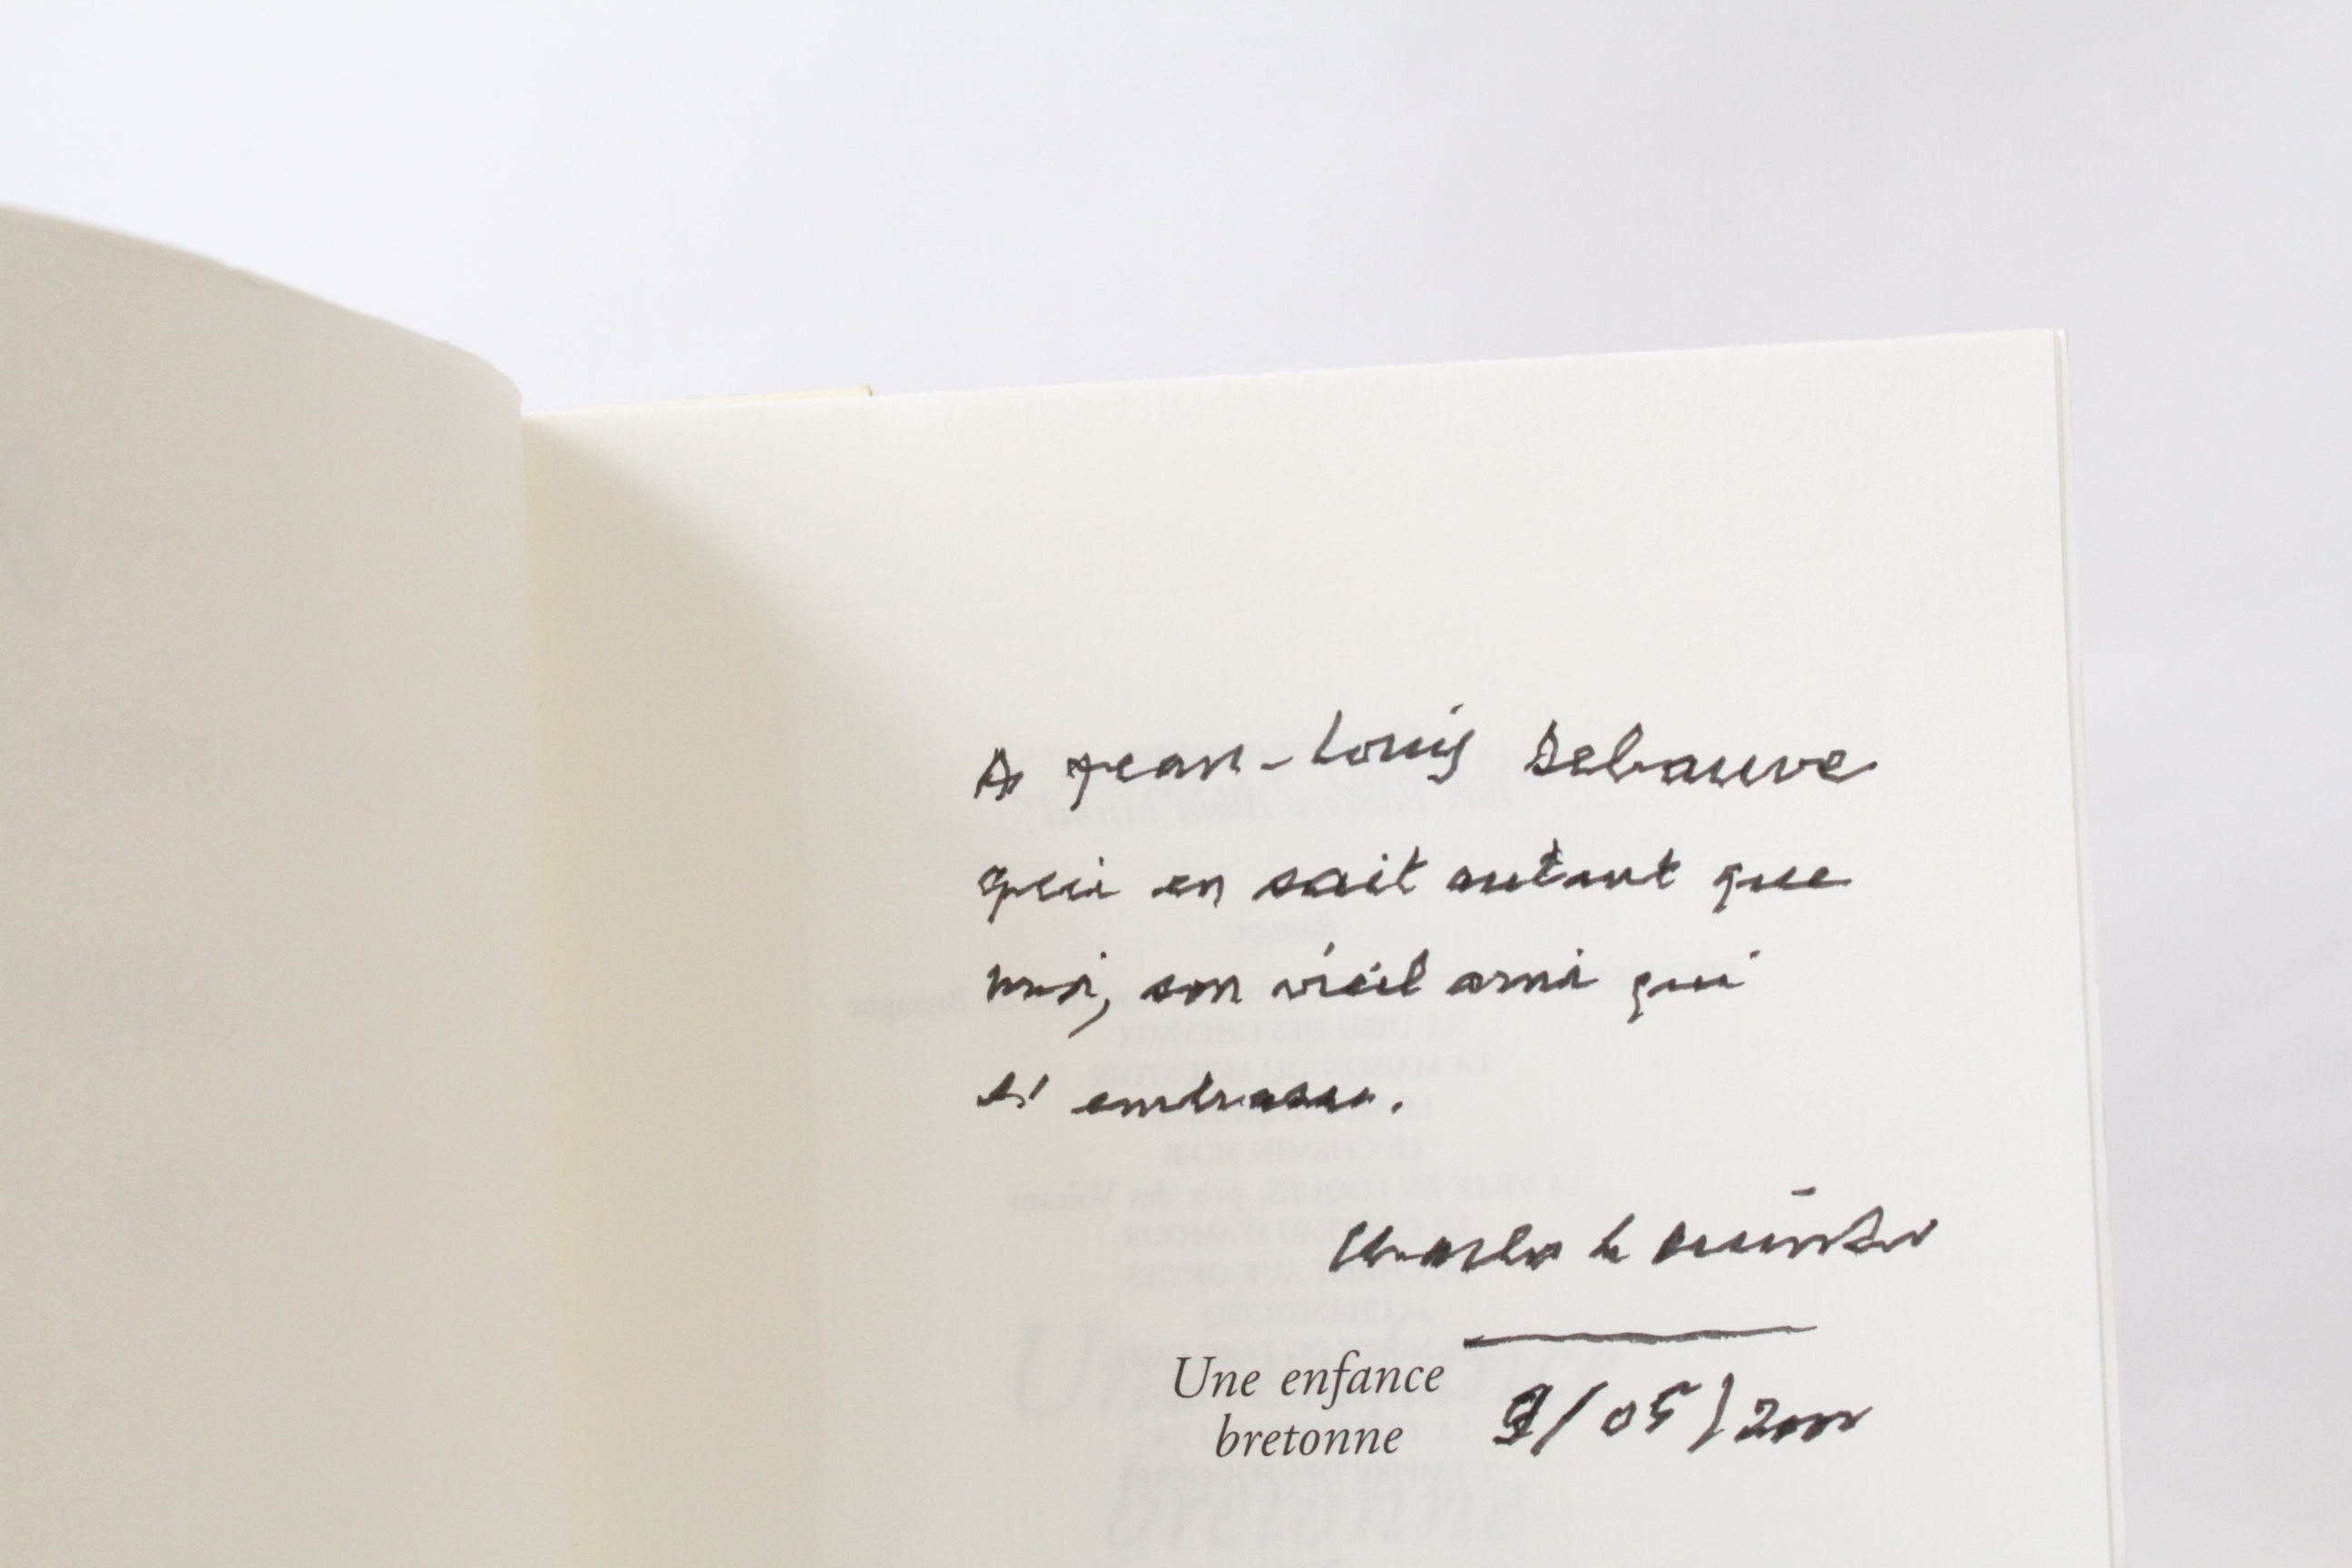 A Jean-Louis Debauve
qui en sait autant que
moi, son vieil ami qui
l' embrasse.
Charles Le Quintrec
9/05/2000
Une enfance
bretonne